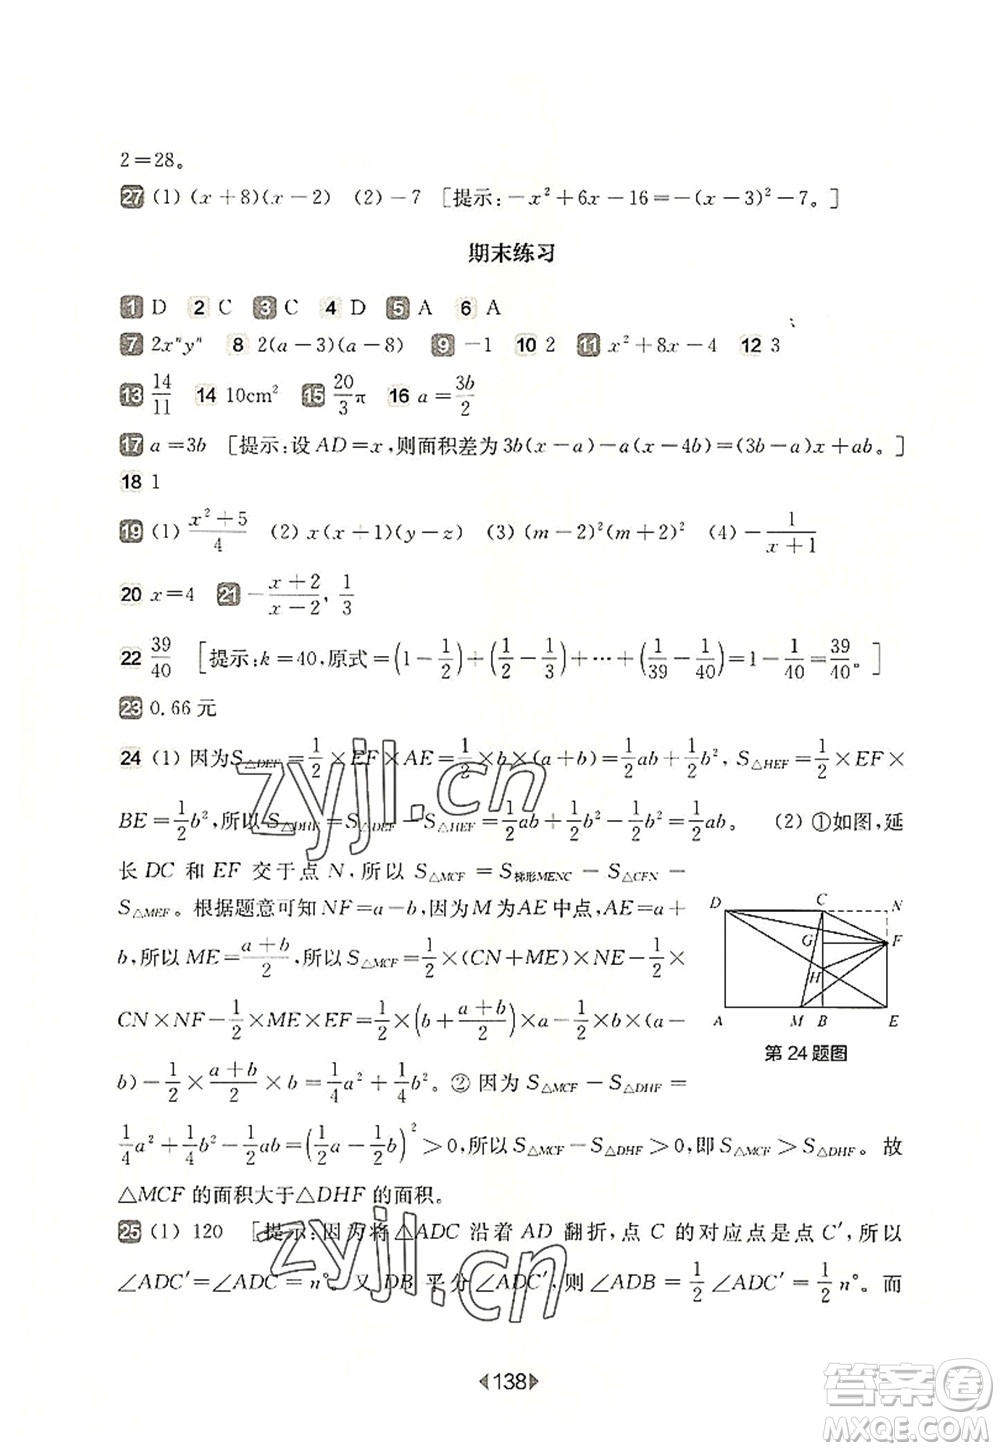 2＝28。
27 (1) (x＋8)(x－2) (2) －7 [提示:－x²＋6x－16＝－(x－3)²－7。]
期末练习
1 D 2 C 3 C 4 D 5 A 6 A
7 2xⁿyⁿ 8 2(a－3)(a－8) 9 －1 10 2 11 x²＋8x－4 12 3
13 14/11 14 10cm² 15 20/3 π 16 a＝3b/2
17 a＝3b [提示:设 AD＝x,则面积差为 3b(x－a)－a(x－4b)＝(3b－a)x＋ab。]
18 1
19 (1) (x²＋5)/4 (2) x(x＋1)(y－z) (3) (m－2)²(m＋2)² (4) －1/(x＋1)
20 x＝4 21 －(x＋2)/(x－2), 1/3
22 39/40 [提示:k＝40,原式＝(1－1/2)＋(1/2－1/3)＋…＋(1/39－1/40)＝1－1/40＝39/40。]
23 0.66 元
24 (1) 因为S△DEF＝1/2×EF×AE＝1/2×b×(a＋b)＝1/2ab＋1/2b², S△HEF＝1/2×EF×
BE＝1/2b²,所以S△DHF＝S△DEF－S△HEF＝1/2ab＋1/2b²－1/2b²＝1/2ab。 (2) ①如图,延
长 DC 和 EF 交于点 N, 所以 S△MCF＝S梯形MENC－S△CFN－
S△MEF。根据题意可知 NF＝a－b,因为M为AE中点,AE＝a＋
b,所以 ME＝(a＋b)/2,所以 S△MCF＝1/2×(CN＋ME)×NE－1/2×
CN×NF－1/2×ME×EF＝1/2×(b＋(a＋b)/2)×a－1/2×b×(a－
b)－1/2×(a＋b)/2×b＝1/4a²＋1/4b²。② 因为 S△MCF－S△DHF＝
1/4a²＋1/4b²－1/2ab＝(1/2a－1/2b)²＞0,所以 S△MCF－S△DHF＞0,即 S△MCF＞S△DHF。故
△MCF 的面积大于△DHF 的面积。
D C N
G F
H
A M B E
第 24 题图
25 (1) 120 [提示:因为将△ADC 沿着 AD 翻折,点 C 的对应点是点 C′,所以
∠ADC′＝∠ADC＝n°。又 DB 平分∠ADC′,则∠ADB＝1/2∠ADC′＝1/2n°。而
138
zyjl.cn
zyjl.cn
答案圈
MXQE.COM